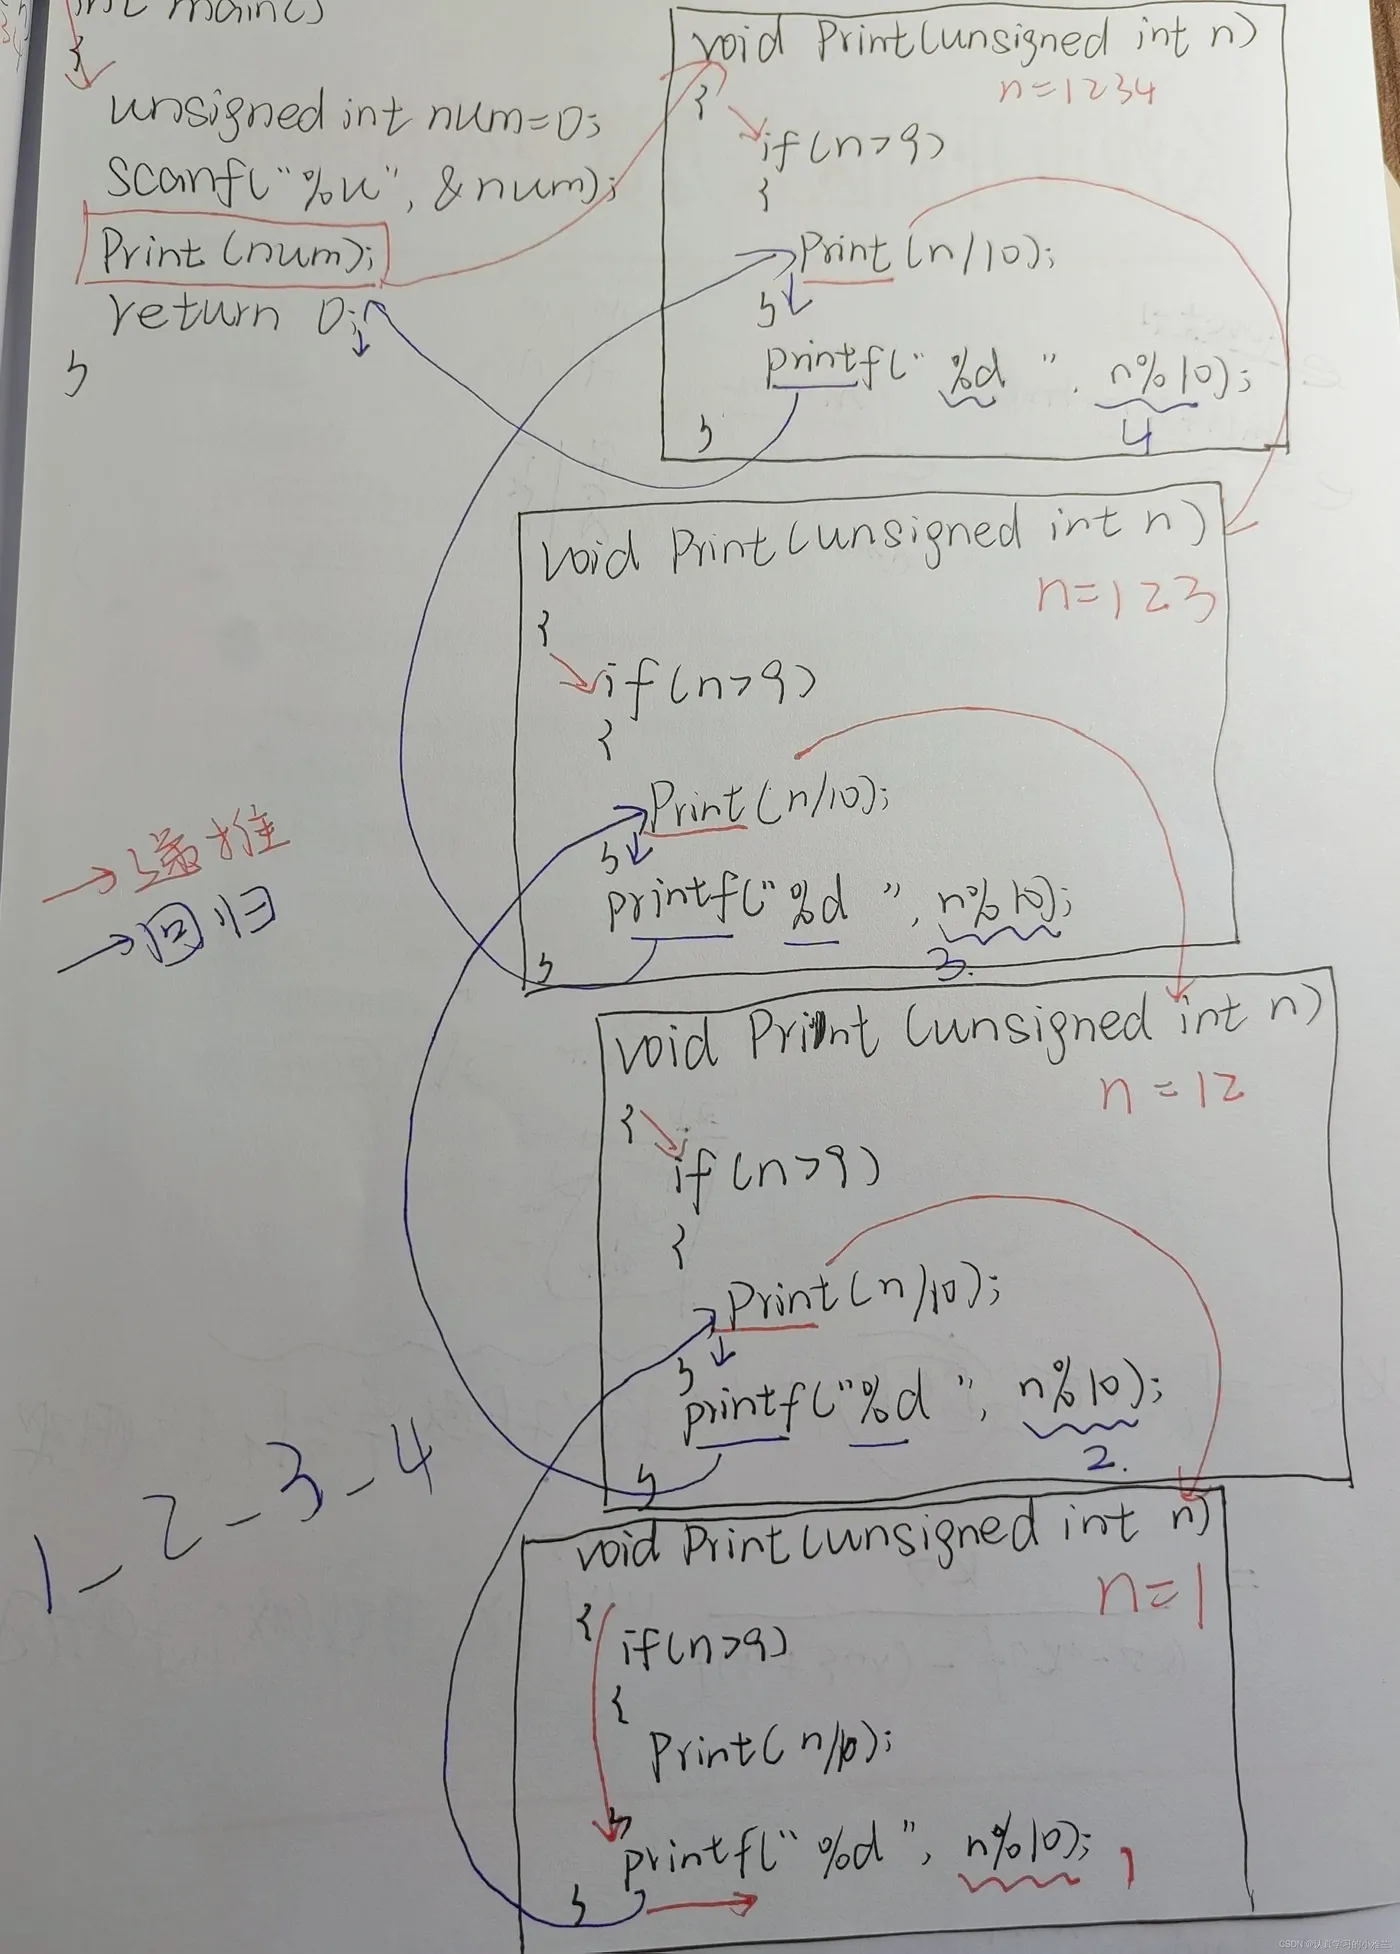 int main()
{
unsigned int num=0;
scanf("%u", &num);
Print(num);
return 0;
}
void Print(unsigned int n)
n=1234
{
if(n>9)
{
Print(n/10);
}
printf("%d ", n%10);
4
}
void Print(unsigned int n)
n=123
{
if(n>9)
{
Print(n/10);
}
printf("%d ", n%10);
3.
}
→递推
→回归
void Print(unsigned int n)
n=12
{
if(n>9)
{
Print(n/10);
}
printf("%d ", n%10);
2.
}
1-2-3-4
void Print(unsigned int n)
n=1
{
if(n>9)
{
Print(n/10);
}
printf("%d ", n%10); 1
}
CSDN @认真学习的小雅兰